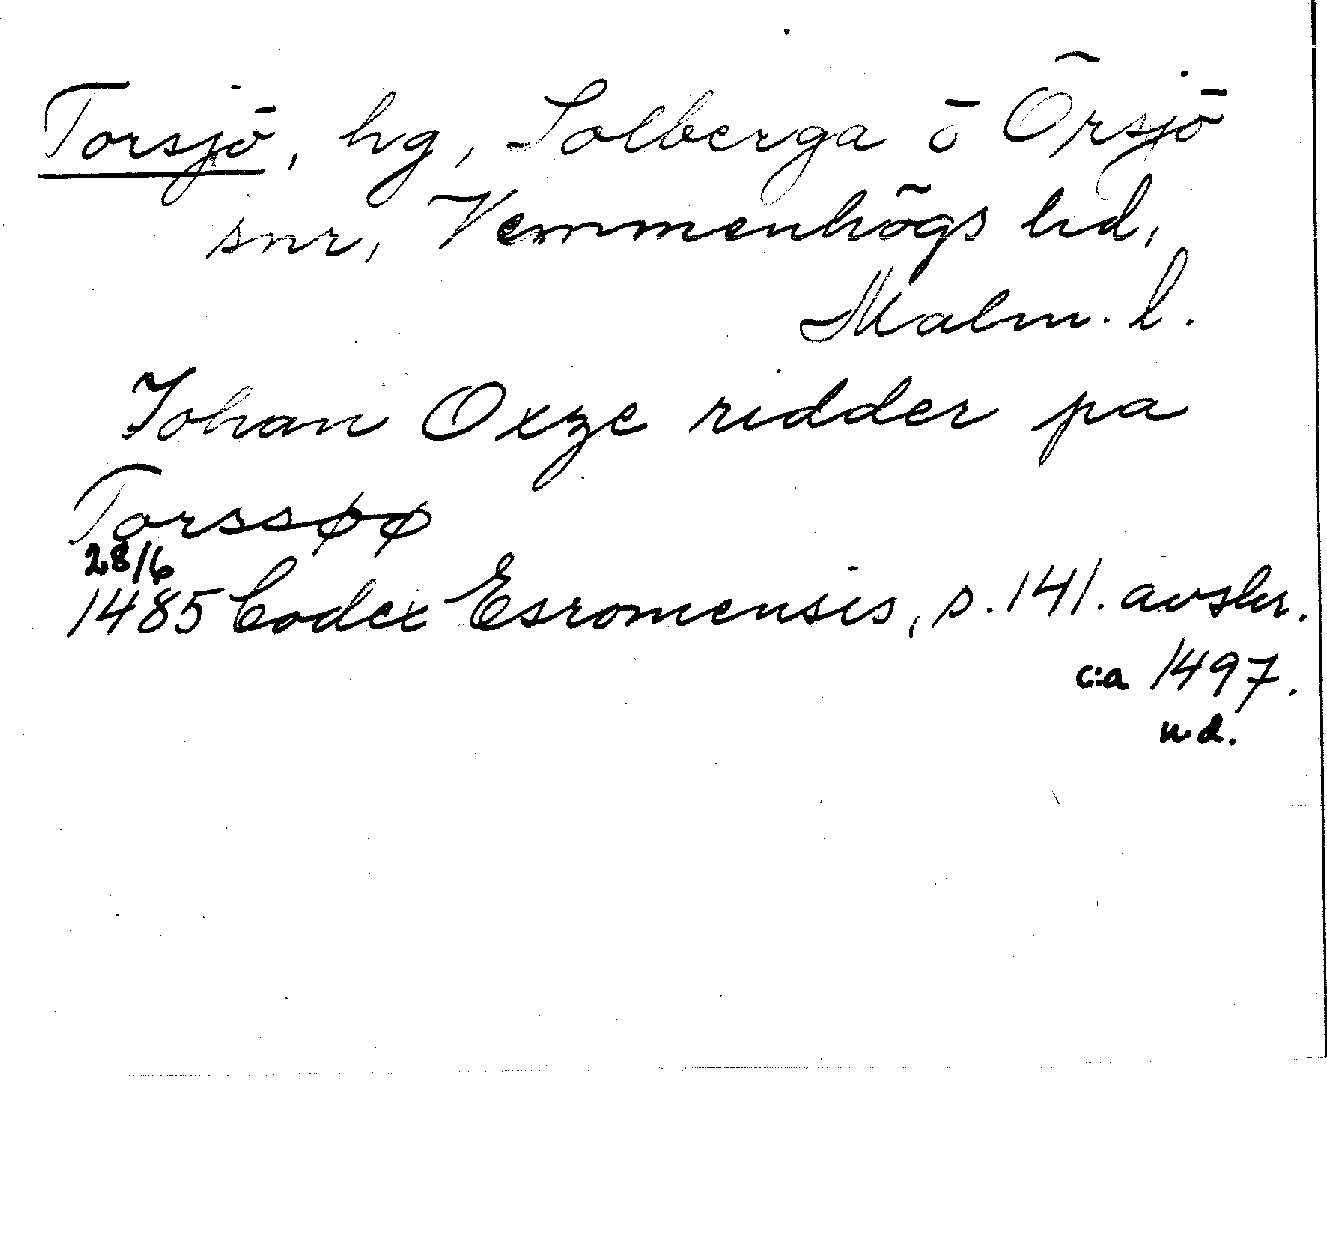 Torsjö, hg, Solberga o Örsjö
snr, Vemmenhögs hd,
Malm. l.
Johan Oxze ridder pa
Torssøø
28/6
1485 Codex Esromensis, s. 141. avskr.
c:a 1497.
n.d.